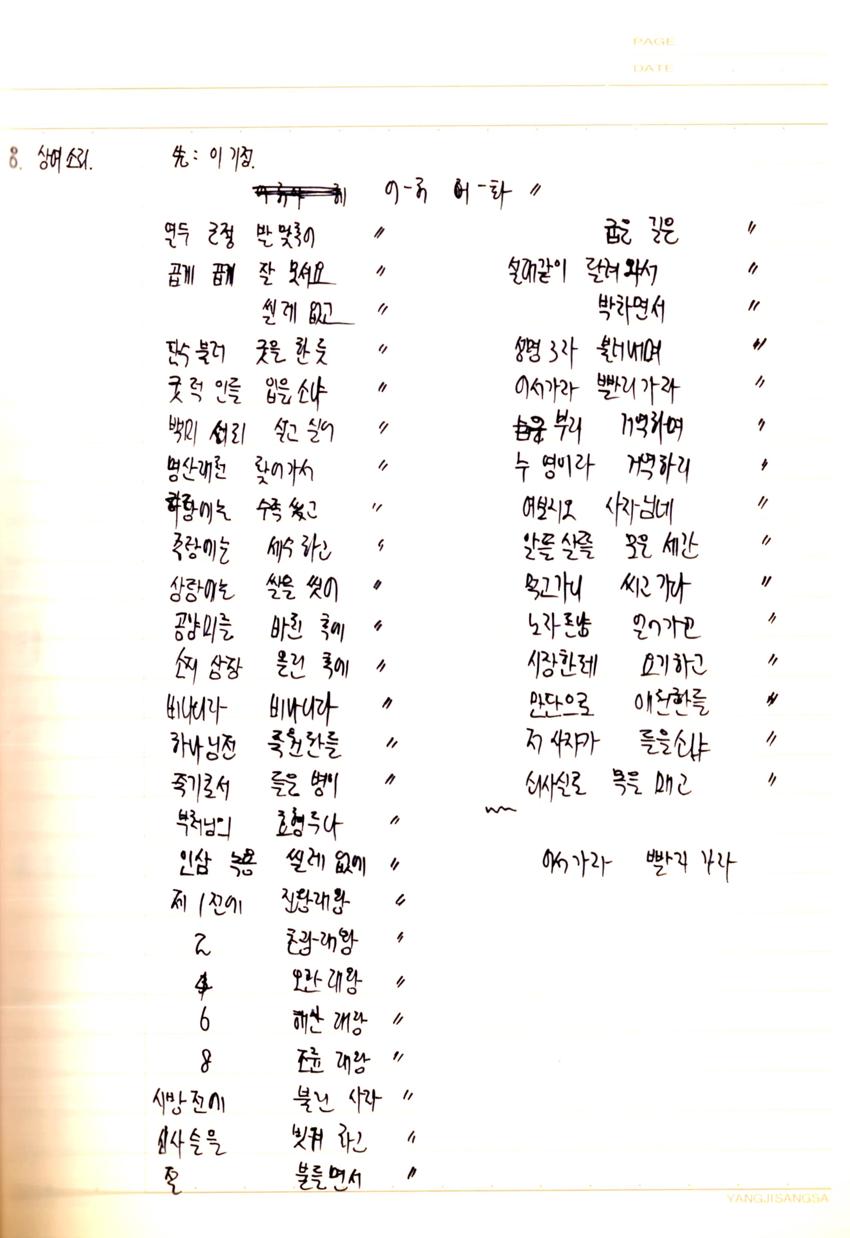 PAGE
DATE
8. 상여소리. 先: 이기점.
어-허 어-화 〃
열두 큰절 반 맞추어 〃
곱게 곱게 잘 모셔요 〃
씰데 없고 〃
판수 불러 굿을 한 듯 〃
굿 덕 인들 입을소냐 〃
백미 서리 실고 실어 〃
명산대천 찾어가서 〃
하탕에는 수족 씻고 〃
중탕에는 세수 하고 〃
상탕에는 쌀을 씻어 〃
공양미를 바친 후에 〃
소지 삼장 올린 후에 〃
비나니라 비나니라 〃
하나님전 축원한들 〃
죽기로서 들은 병이 〃
부처님의 효험두나 〃
인삼 녹용 씰데 없에 〃
제 1전에 진광대왕 〃
2 초관대왕 〃
4 오관대왕 〃
6 대왕 〃
8 대왕 〃
시방전에 불닌 사라 〃
쇠사슬을 빗겨 라고 〃
또 불들면서 〃
굽은 길은 〃
살대같이 달려 와서 〃
박하면서 〃
성명 3자 불러내며 〃
어서가라 빨리가라 〃
뉘 부리 거역하며 〃
수 영이라 거역하리 〃
여보시오 사자님네 〃
알뜰살뜰 모은 세간 〃
먹고가니 씨고가라 〃
노자돈냥 얻어가고 〃
시장한데 요기하고 〃
만단으로 애원한들 〃
저 사자가 들을소냐 〃
쇠사실로 목을 매고 〃
어서가라 빨리 가라
YANGJISANGSA